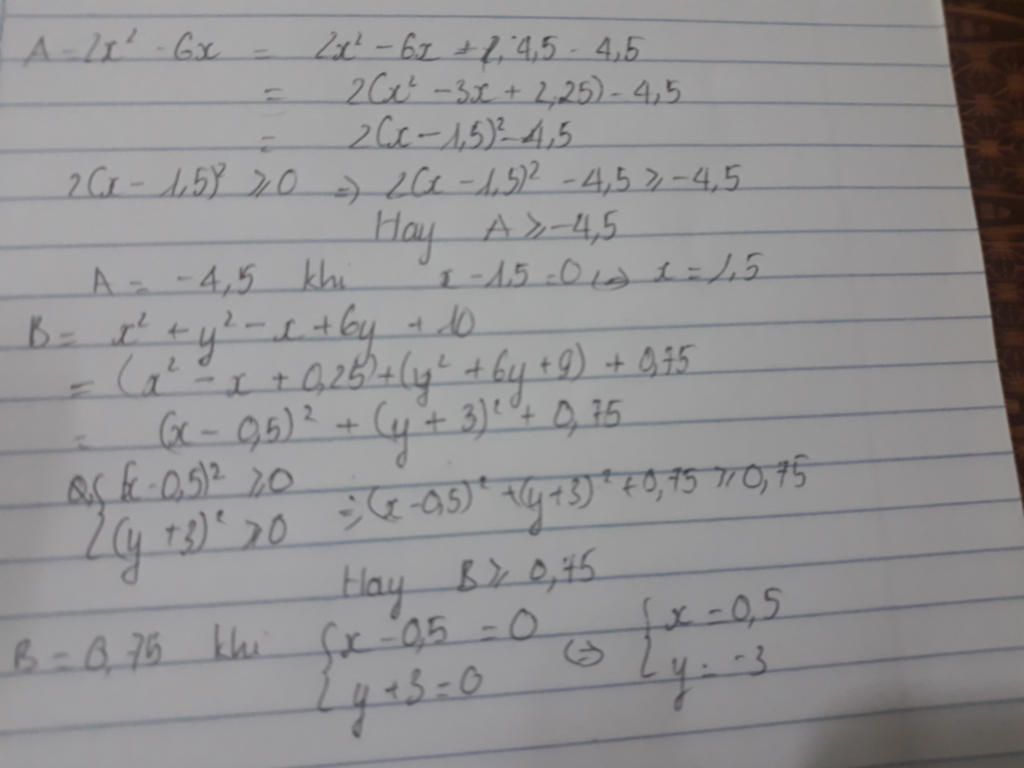 A = 2x² - 6x = 2x² - 6x + 4,5 - 4,5
= 2(x² - 3x + 2,25) - 4,5
= 2(x - 1,5)² - 4,5
2(x - 1,5)² ≥ 0 => 2(x - 1,5)² - 4,5 ≥ -4,5
Hay A ≥ -4,5
A = -4,5 khi x - 1,5 = 0 <=> x = 1,5
B = x² + y² - x + 6y + 10
= (x² - x + 0,25) + (y² + 6y + 9) + 0,75
= (x - 0,5)² + (y + 3)² + 0,75
{ (x - 0,5)² ≥ 0
{ (y + 3)² ≥ 0 => (x - 0,5)² + (y + 3)² + 0,75 ≥ 0,75
Hay B ≥ 0,75
B = 0,75 khi { x - 0,5 = 0 <=> { x = 0,5
{ y + 3 = 0 { y = -3